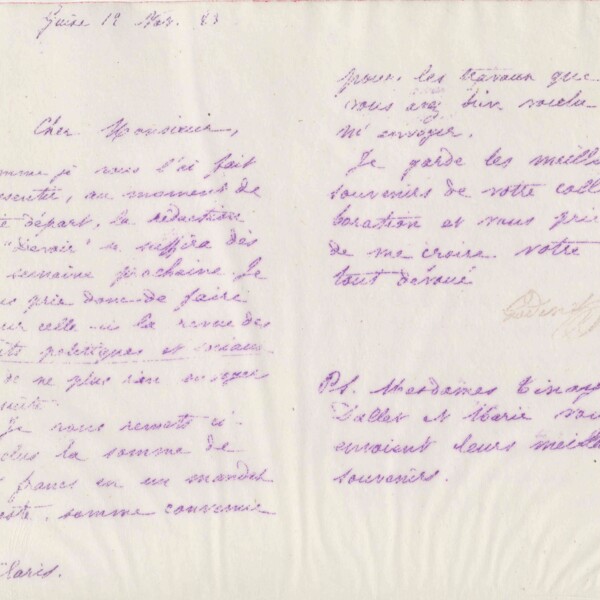 Guise 12 Nov. 83
Cher Monsieur,
omme je vous l'ai fait
essentir, au moment de
départ, la rédaction
"Devoir" se suffira dès
semaine prochaine. Je
us prie donc de faire
ur celle-ci la revue des
its politiques et sociaux
de ne plus rien
suite.
Je vous remets ci-
clus la somme de
francs en un mandat
oste, somme convenue
laris.
pour les travaux que
vous avez bien voulu
m'envoyer.
Je garde les meille
souvenirs de votre colla
boration et vous prie
de me croire votre
tout dévoué
Godin
Ps. Mesdames Tinay
Dallet et Marie vou
envoient leurs meill
souvenirs.